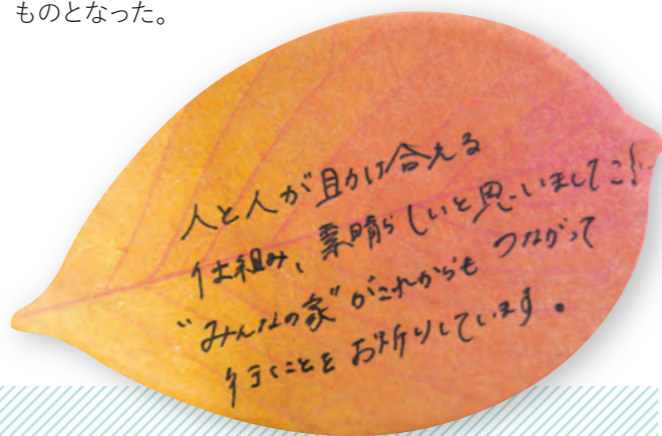 ものとなった。
人と人が助け合える
仕組み、素晴らしいと思いました!
"みんなの家"がこれからも つながって
行くことを お祈りしています。